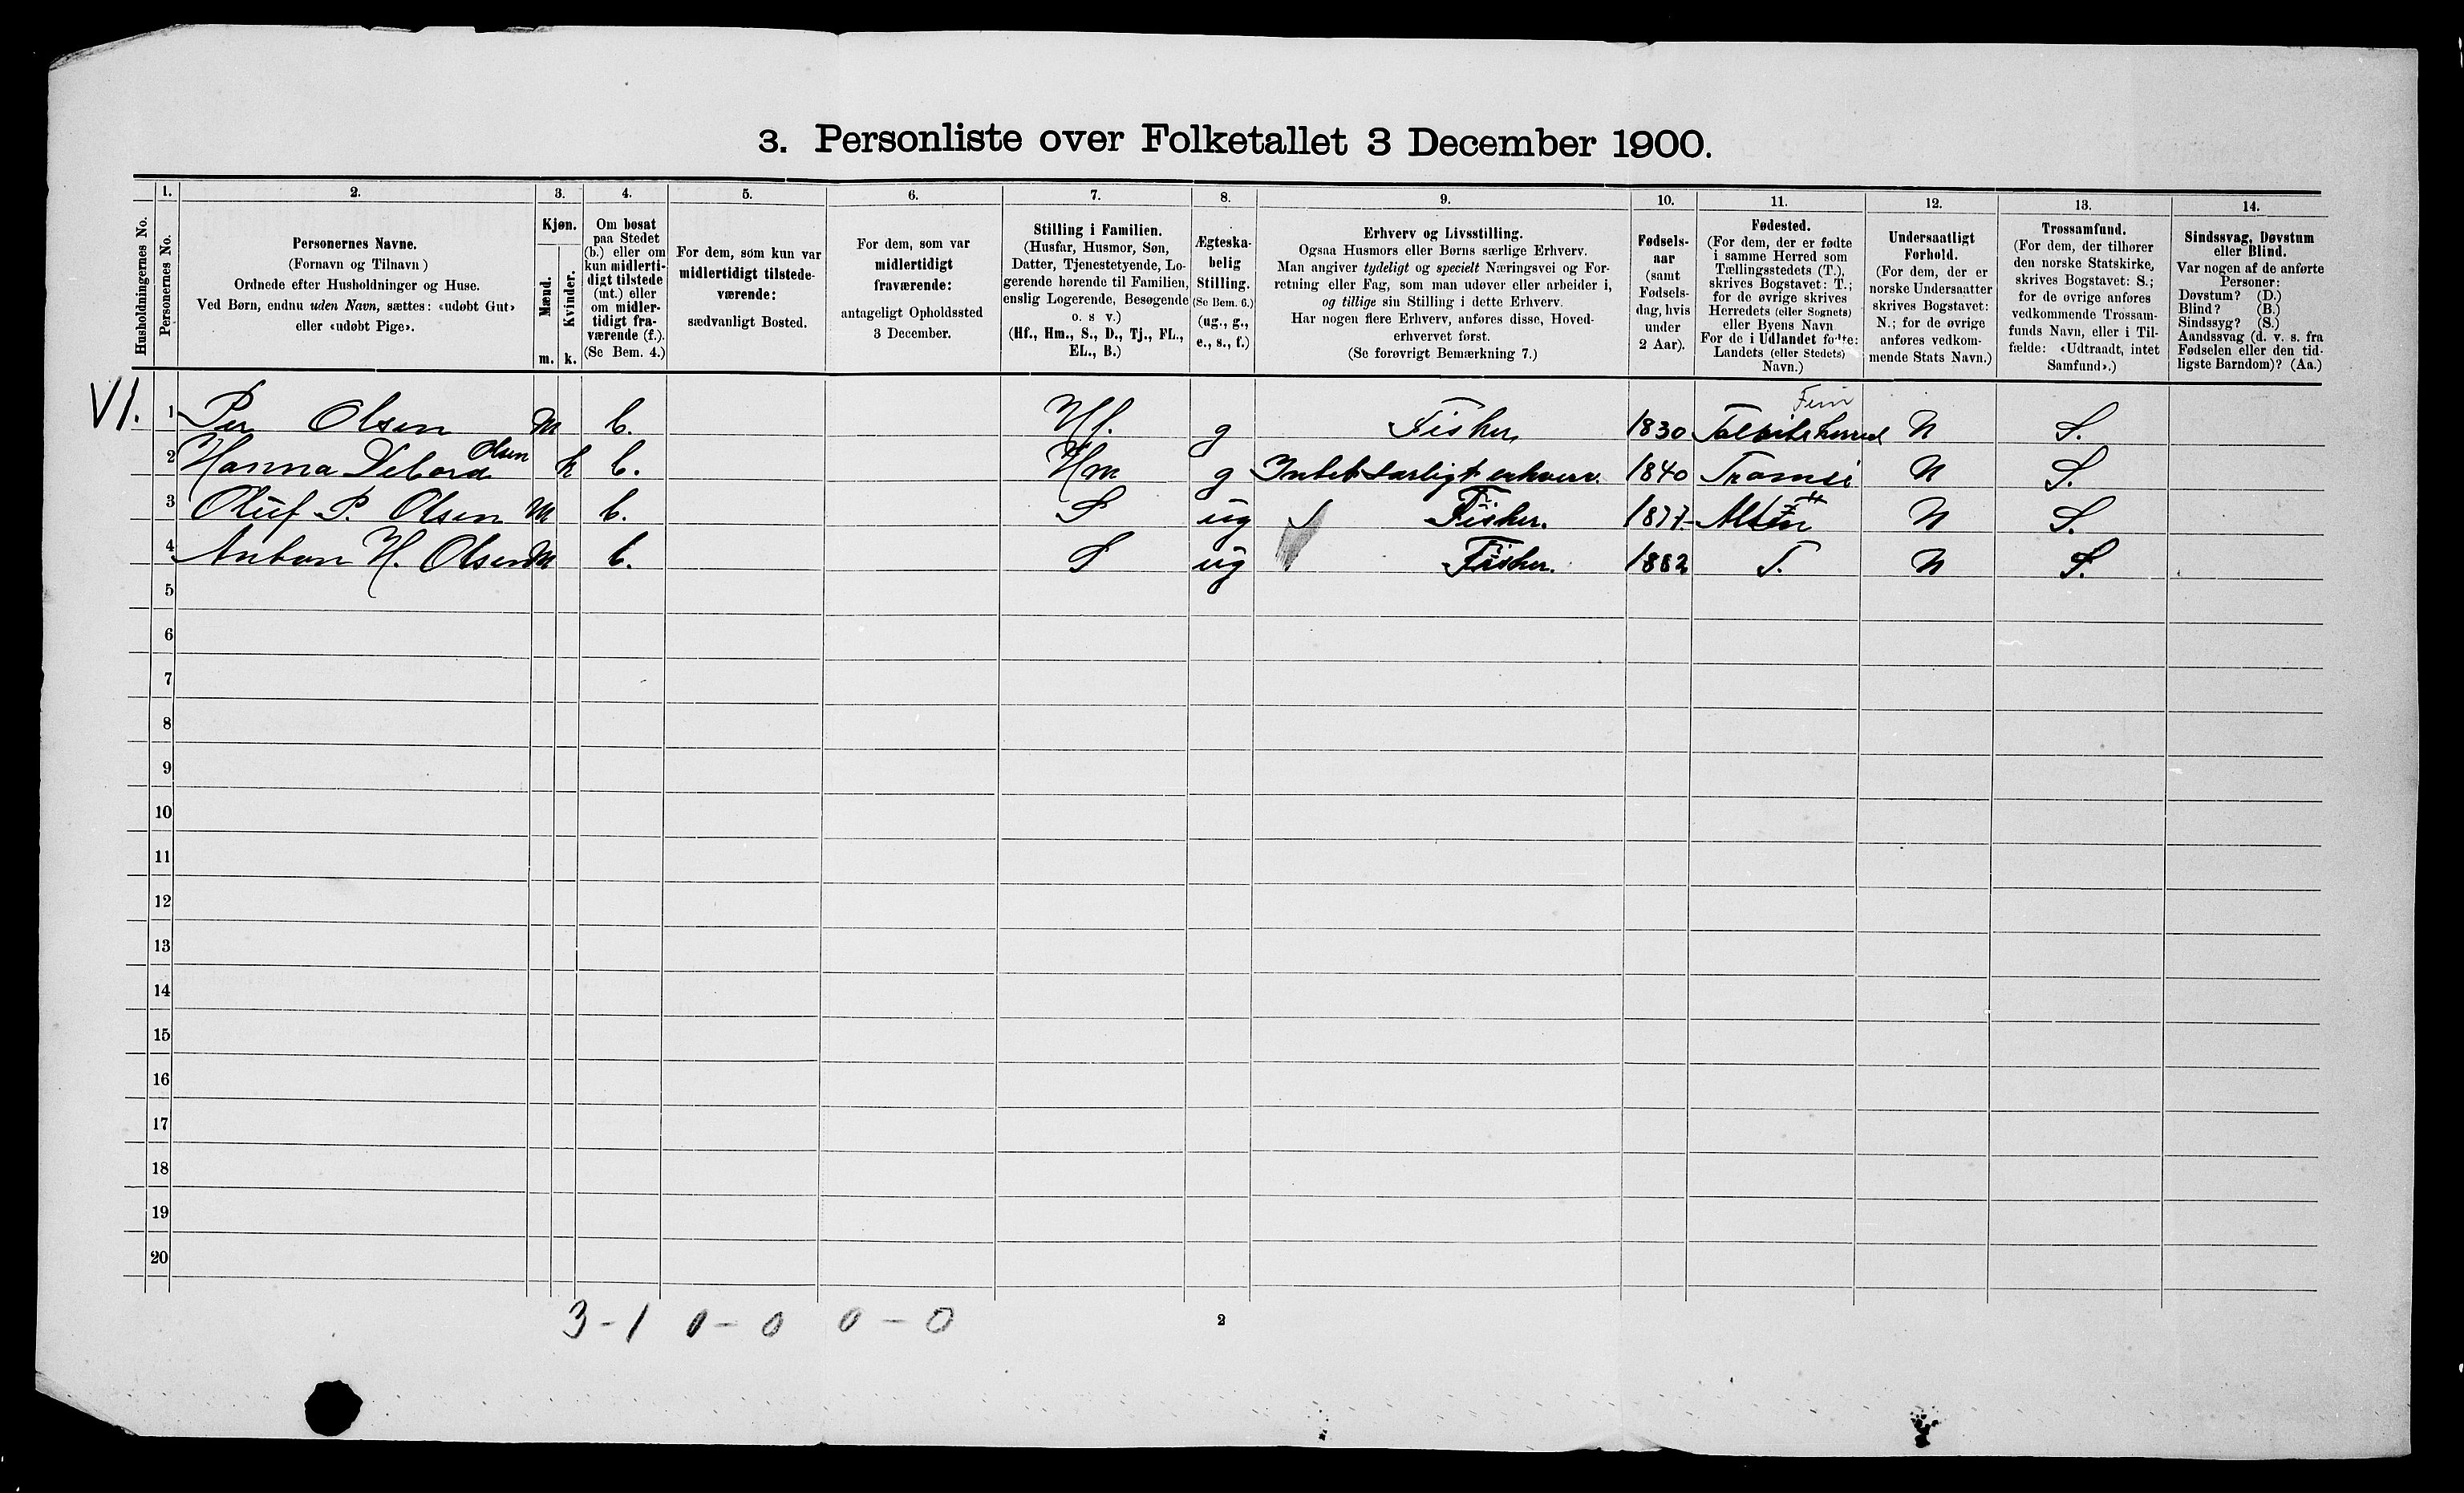 3. Personliste over Folketallet 3 December 1900.
1. 2. 3. 4. 5. 6. 7. 8. 9. 10. 11. 12. 13. 14.
Husholdningernes No.
Personernes No.
Personernes Navne.
(Fornavn og Tilnavn)
Ordnede efter Husholdninger og Huse.
Ved Børn, endnu uden Navn, sættes: «udøbt Gut»
eller «udøbt Pige».
Kjøn.
Mænd.
Kvinder.
m. k.
Om bosat
paa Stedet
(b.) eller om
kun midlerti-
digt tilstede
(mt.) eller
om midler-
tidigt fra-
værende (f.).
(Se Bem. 4.)
For dem, som kun var
midlertidigt tilstede-
værende:
sædvanligt Bosted.
For dem, som var
midlertidigt
fraværende:
antageligt Opholdssted
3 December.
Stilling i Familien.
(Husfar, Husmor, Søn,
Datter, Tjenestetyende, Lo-
gerende hørende til Familien,
enslig Logerende, Besøgende
o. s v.)
(Hf., Hm., S., D., Tj., FL.,
EL., B.)
Ægteska-
belig
Stilling.
(Se Bem. 6.)
(ug., g.,
e., s., f.)
Erhverv og Livsstilling.
Ogsaa Husmors eller Børns særlige Erhverv.
Man angiver tydeligt og specielt Næringsvei og For-
retning eller Fag, som man udøver eller arbeider i,
og tillige sin Stilling i dette Erhverv.
Har nogen flere Erhverv, anføres disse, Hoved-
erhvervet først.
(Se forøvrigt Bemærkning 7.)
Fødsels-
aar
(samt
Fødsels-
dag, hvis
under
2 Aar).
Fødested.
(For dem, der er fødte
i samme Herred som
Tællingsstedets (T.),
skrives Bogstavet: T.;
for de øvrige skrives
Herredets (eller Sognets)
eller Byens Navn
For de i Udlandet fødte:
Landets (eller Stedets)
Navn.)
Undersaatligt
Forhold.
(For dem, der er
norske Undersaatter
skrives Bogstavet:
N.; for de øvrige
anføres vedkom-
mende Stats Navn.)
Trossamfund.
(For dem, der tilhører
den norske Statskirke,
skrives Bogstavet: S.;
for de øvrige anføres
vedkommende Trossam-
funds Navn, eller i Til-
fælde: «Udtraadt, intet
Samfund».)
Sindssvag, Døvstum
eller Blind.
Var nogen af de anførte
Personer:
Døvstum? (D.)
Blind? (B.)
Sindssyg? (S.)
Aandssvag (d. v. s. fra
Fødselen eller den tid-
ligste Barndom)? (Aa.)
VI. 1 Per Olsen m b. Hf. g Fisker 1830 N S.
2 Hanna Olsen k b. Hm g Intet særligt erhverv. 1840 Tromsö N S.
3 Oluf P. Olsen m b. S ug Fisker. 1877 Alten N S.
4 Anton H. Olsen m b. S ug Fisker. 1882 T. N S.
5
6
7
8
9
10
11
12
13
14
15
16
17
18
19
20
3-1 0-0 0-0 2